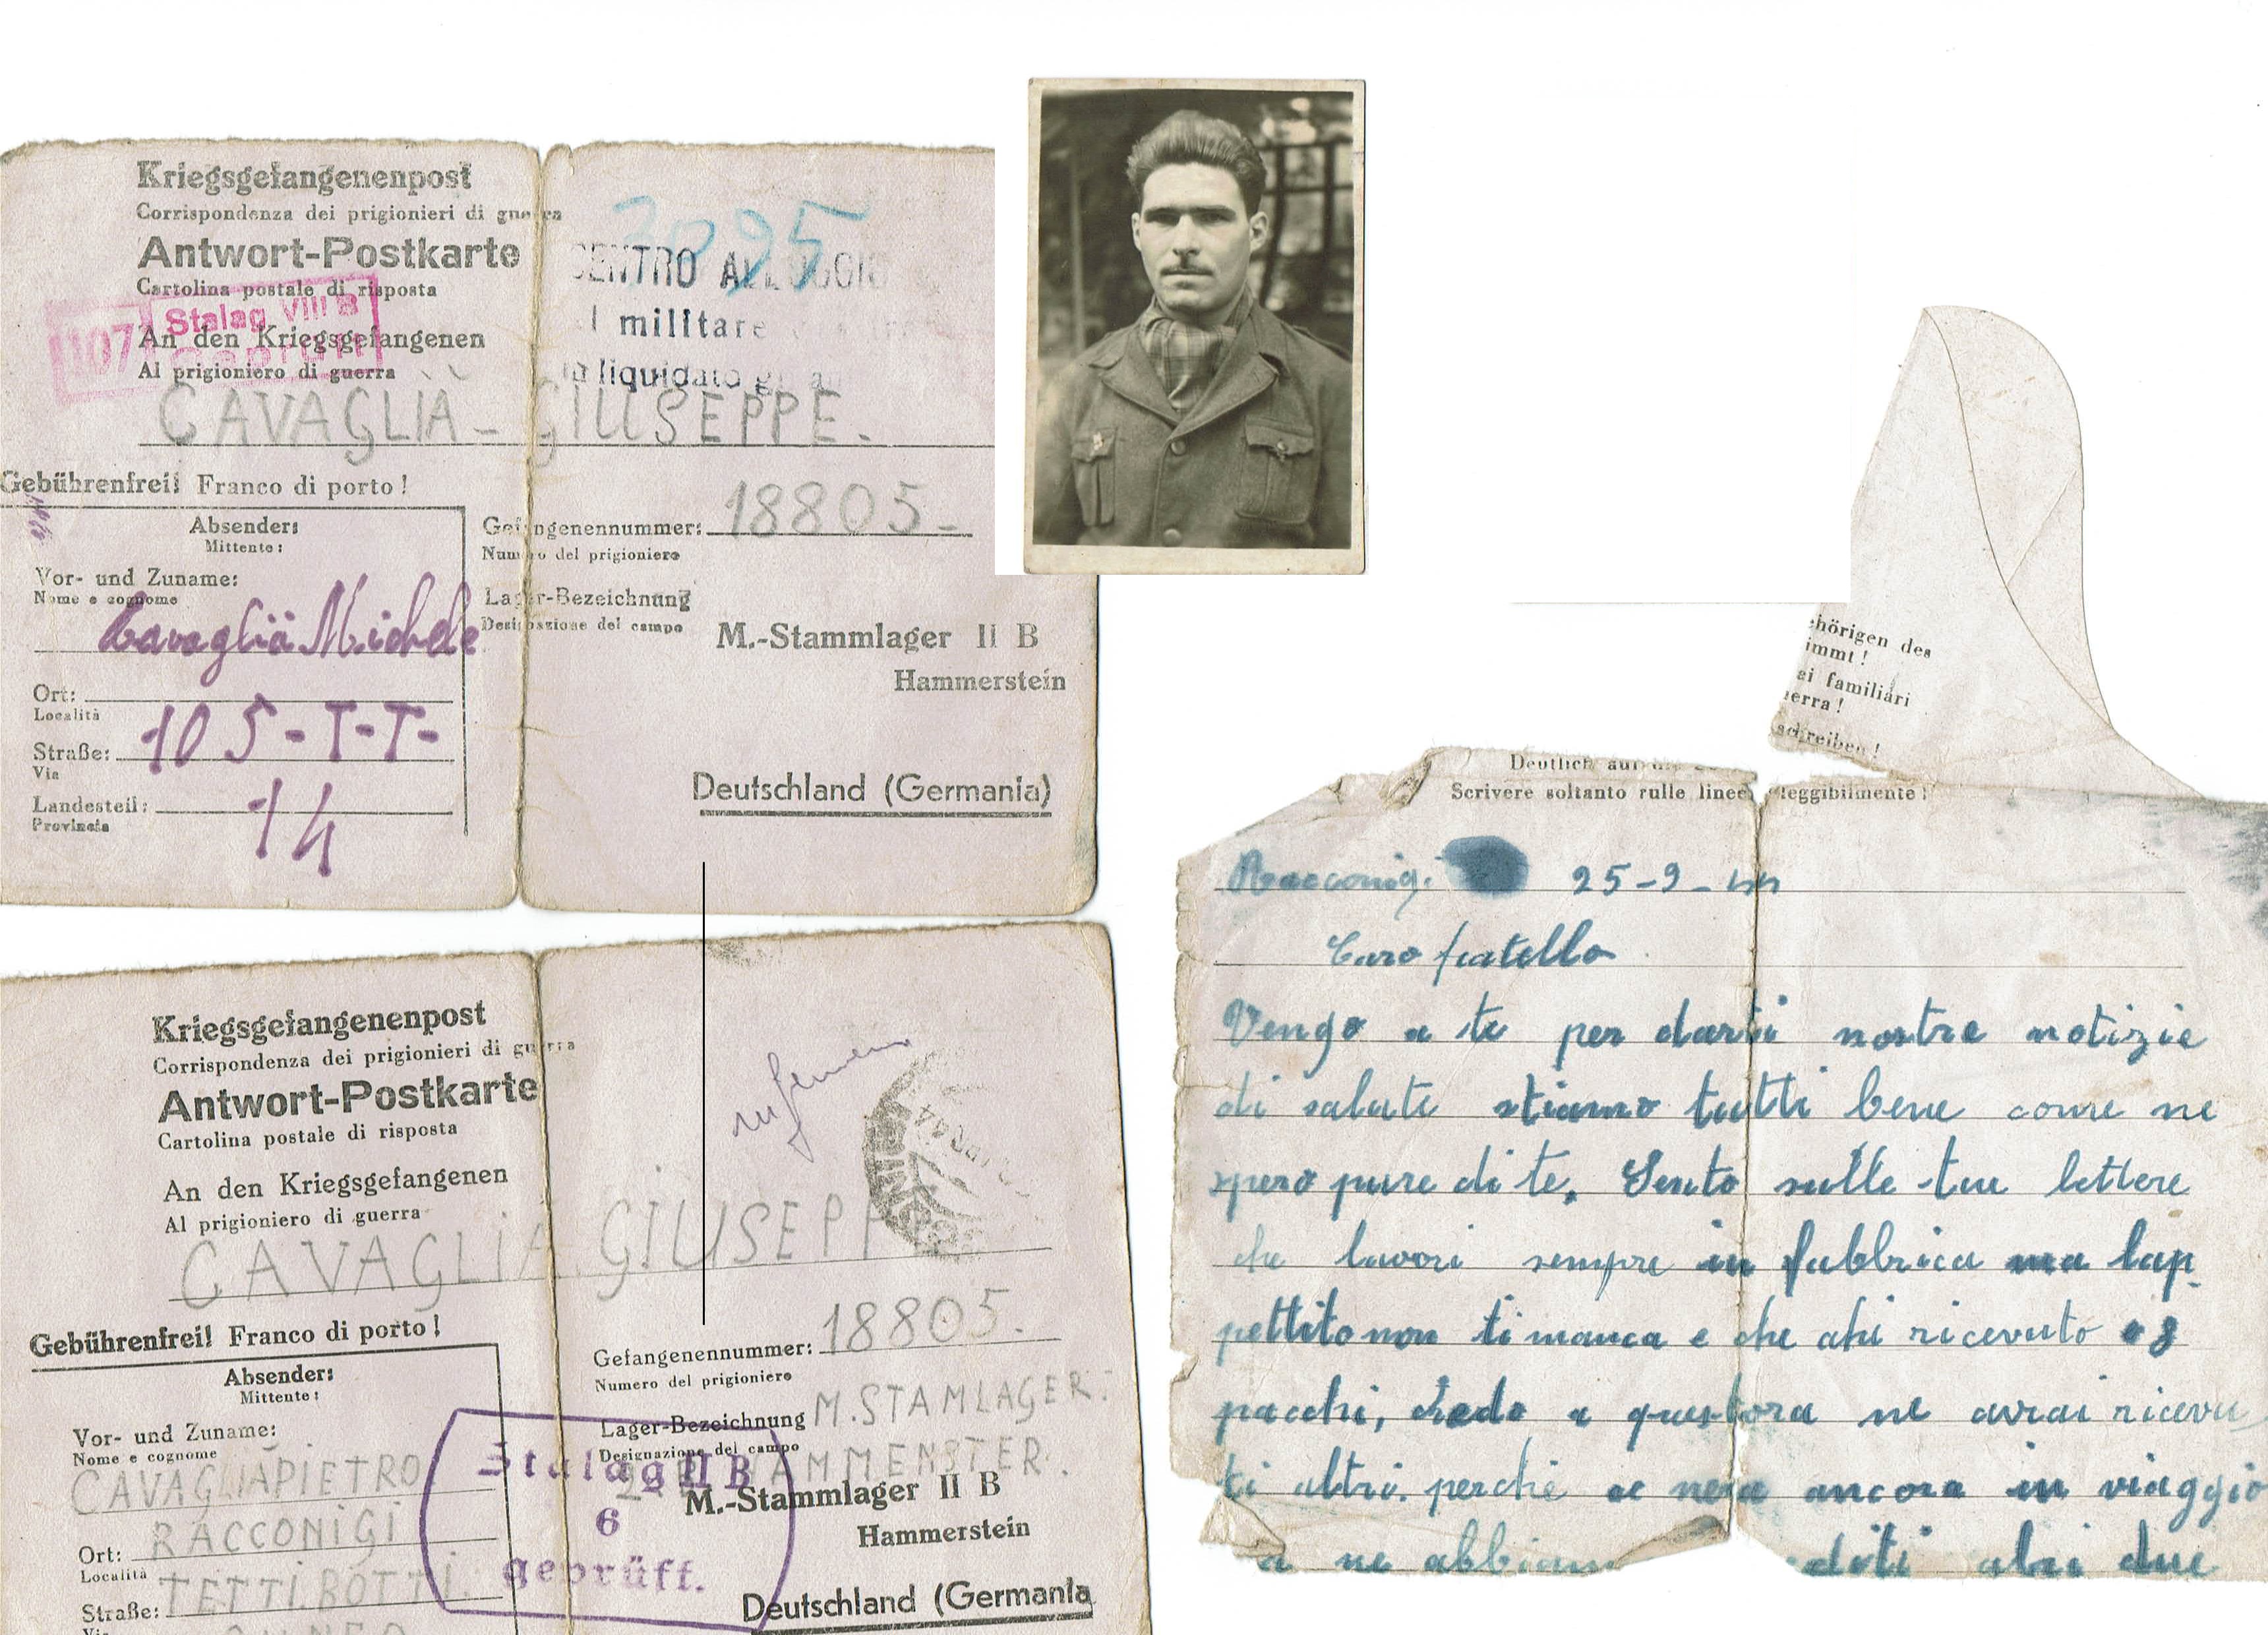 Kriegsgefangenenpost
Corrispondenza dei prigionieri di guerra
Antwort-Postkarte
Cartolina postale di risposta
107 Stalag VIII B
Geprüft
An den Kriegsgefangenen
Al prigioniero di guerra
CAVAGLIÀ - GIUSEPPE.
3095
CENTRO ALLOGGIO
militare
liquidato
Gebührenfrei! Franco di porto!
Absender:
Mittente:
Vor- und Zuname:
Nome e cognome
Cavaglià Michele
Ort:
Località
105-T-T-
Straße:
Via
14
Landesteil:
Provincia
Gefangenennummer: 18805-
Numero del prigioniero
Lager-Bezeichnung
Designazione del campo
M.-Stammlager II B
Hammerstein
Deutschland (Germania)
Kriegsgefangenenpost
Corrispondenza dei prigionieri di guerra
Antwort-Postkarte
Cartolina postale di risposta
An den Kriegsgefangenen
Al prigioniero di guerra
CAVAGLIÀ GIUSEPP
Gebührenfrei! Franco di porto!
Absender:
Mittente:
Vor- und Zuname:
Nome e cognome
CAVAGLIÀ PIETRO
RACCONIGI
Ort:
Località
TETTI BOTTI.
Straße:
Via
Gefangenennummer: 18805.
Numero del prigioniero
Lager-Bezeichnung M. STAMLAGER.
Designazione del campo
HAMMENSTER.
Stalag II B
6
geprüft.
M.-Stammlager II B
Hammerstein
Deutschland (Germania
ehörigen des
immt!
ei familiari
erra!
schreiben!
Deutlich auf
Scrivere soltanto sulle linee leggibilmente!
Racconigi 25-9-44
Caro fratello
Vengo a te per darti nostre notizie
di salute stiamo tutti bene come ne
spero pure di te. Sento sulle tue lettere
che lavori sempre in fabbrica ma lap
pettito non ti manca e che ahi ricevuto 8
pacchi, credo a questora ne avrai ricevu
ti altri. perché ancora in viaggio
a ne abbiam diti altri due